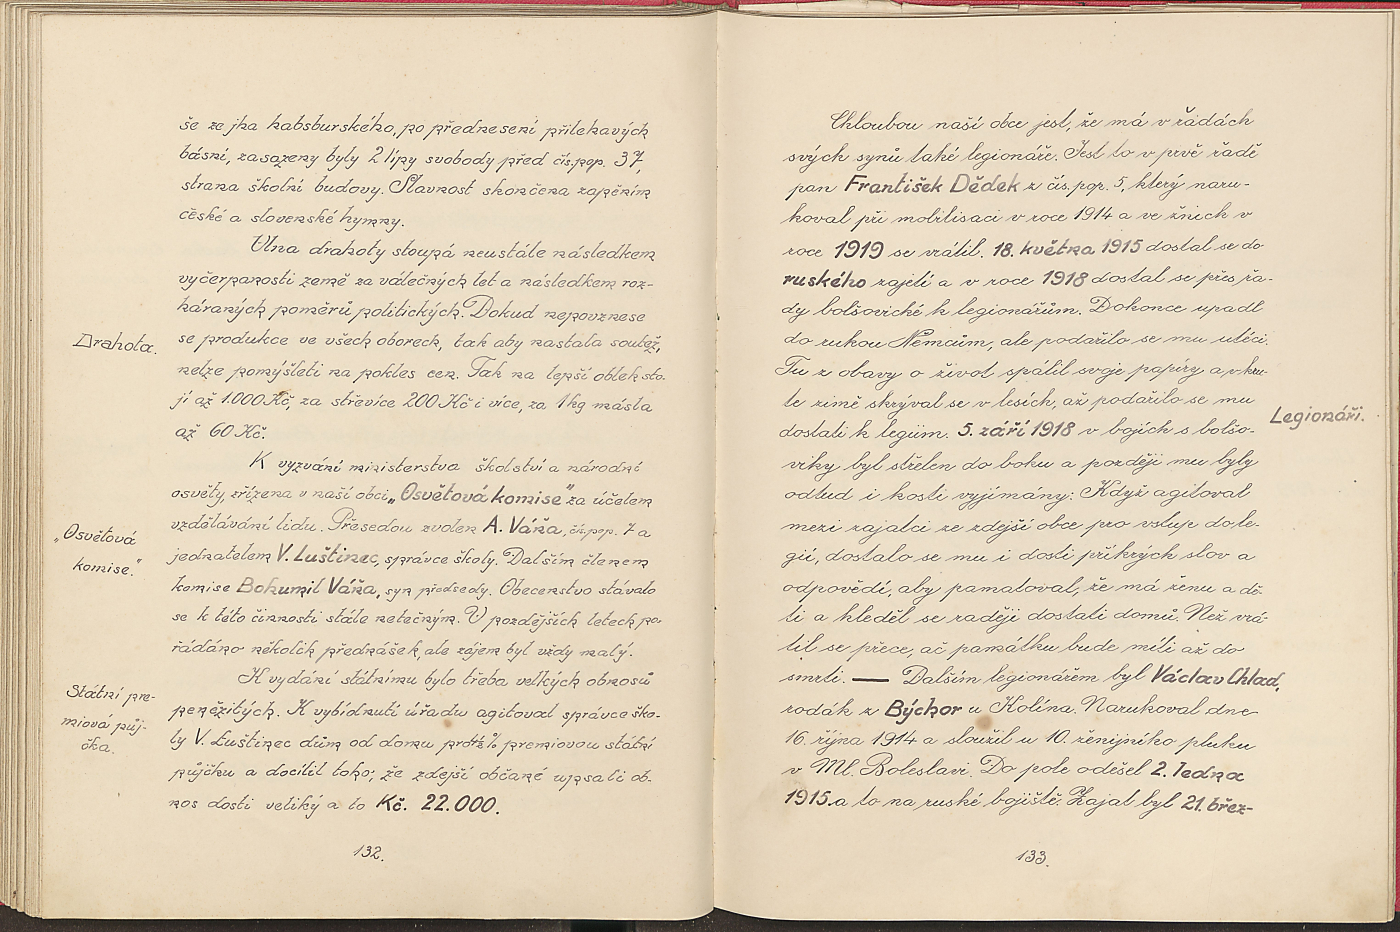 še ze jha habsburského, po přednesení přilehavých
básní, zasazeny byly 2 lípy svobody před čís. pop. 37,
strana školní budovy. Slavnost skončena zapěním
české a slovenské hymny.
Vlna drahoty stoupá neustále následkem
vyčerpanosti země za válečných let a následkem roz-
háraných poměrů politických. Dokud nepovznese
Drahota.
se produkce ve všech oborech, tak aby nastala soutěž,
nelze pomýšleti na pokles cen. Tak na lepší oblek sto-
jí až 1.000 Kč, za střevíce 200 Kč i více, za 1 kg másla
až 60 Kč.
K vyzvání ministerstva školství a národní
osvěty, zřízena v naší obci „Osvětová komise" za účelem
vzdělávání lidu. Předsedou zvolen A. Váňa, čís. pop. 7 a
„Osvětová
komise."
jednatelem V. Luštinec, správce školy. Dalším členem
komise Bohumil Váňa, syn předsedy. Obecenstvo stávalo
se k této činnosti stále netečným. V pozdějších letech po-
řádáno několik přednášek, ale zájem byl vždy malý.
K vydání státnímu bylo třeba velkých obnosů
Státní pre-
miová půj-
čka.
peněžitých. K vybídnutí úřadu agitoval správce ško-
ly V. Luštinec dům od domu pro 4½% premiovou státní
půjčku a docílil toho, že zdejší občané upsali ob-
nos dosti veliký a to Kč. 22.000.
132.
Chloubou naší obce jest, že má v řadách
svých synů také legionáře. Jest to v prvé řadě
pan František Dědek z čís. pop. 5, který naru-
koval při mobilisaci v roce 1914 a ve žních v
roce 1919 se vrátil. 18. května 1915 dostal se do
ruského zajetí a v roce 1918 dostal se přes řa-
dy bolševické k legionářům. Dokonce upadl
do rukou Němcům, ale podařilo se mu utéci.
Tu z obavy o život spálil svoje papíry a v kru-
té zimě skrýval se v lesích, až podařilo se mu
Legionáři.
dostati k legiím. 5. září 1918 v bojích s bolše-
viky byl střelen do boku a později mu byly
odtud i kosti vyjímány. Když agitoval
mezi zajatci ze zdejší obce pro vstup do le-
gií, dostalo se mu i dosti příkrých slov a
odpovědí, aby pamatoval, že má ženu a dě-
ti a hleděl se raději dostati domů. Než vrá-
til se přece, ač památku bude míti až do
smrti. — Dalším legionářem byl Václav Chlad,
rodák z Býchor u Kolína. Narukoval dne
16. října 1914 a sloužil u 10. ženijního pluku
v Ml. Boleslavi. Do pole odešel 2. ledna
1915 a to na ruské bojiště. Zajat byl 21. břez-
133.